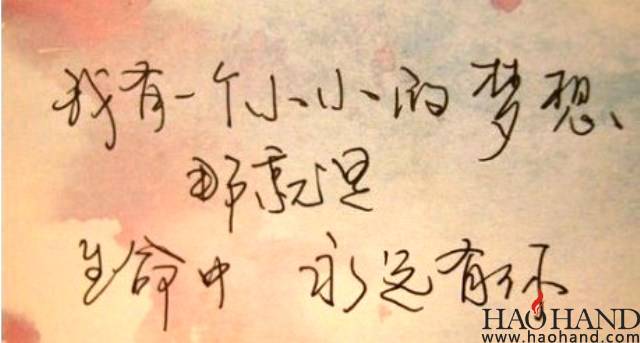 我有一个小小的梦想
那就是
生命中 永远有你
HAOHAND
www.haohand.com